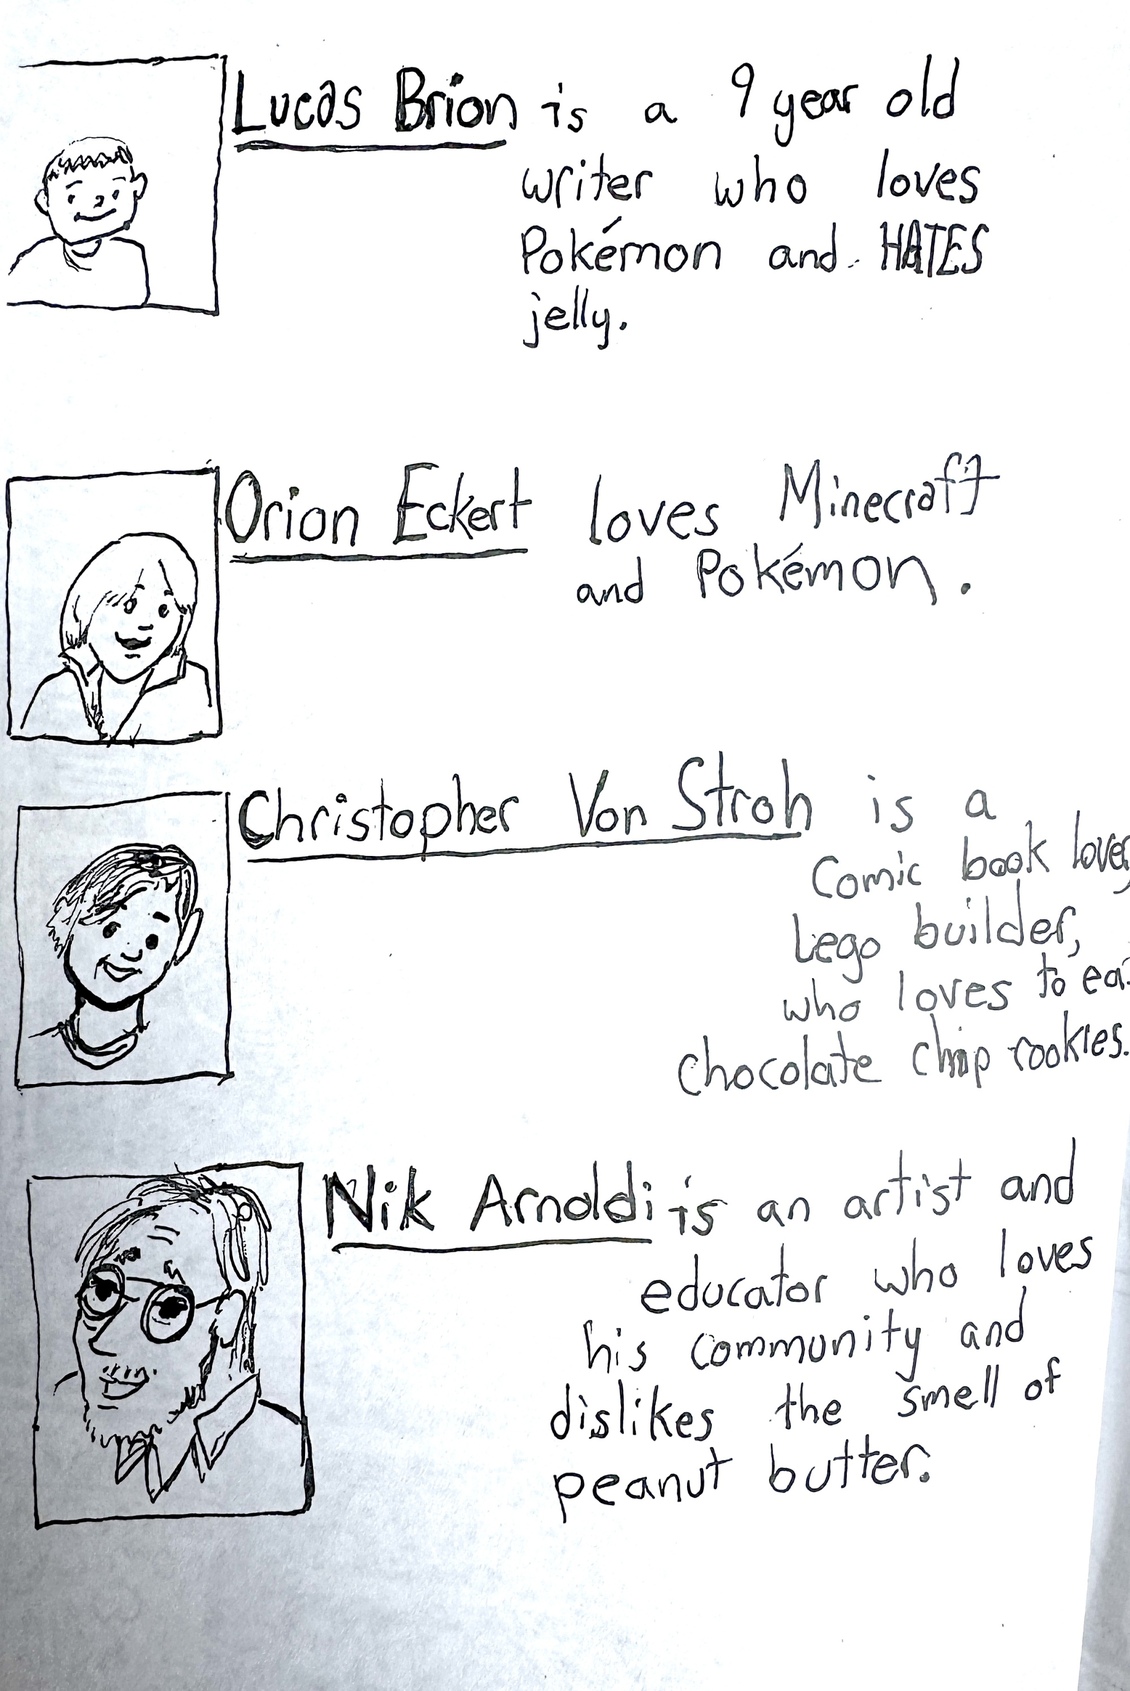 Lucas Brion is a 9 year old
writer who loves
Pokémon and HATES
jelly.
Orion Eckert loves Minecraft
and Pokémon.
Christopher Von Stroh is a
Comic book lover,
Lego builder,
who loves to eat
chocolate chip cookies.
Nik Arnoldi is an artist and
educator who loves
his community and
dislikes the smell of
peanut butter.